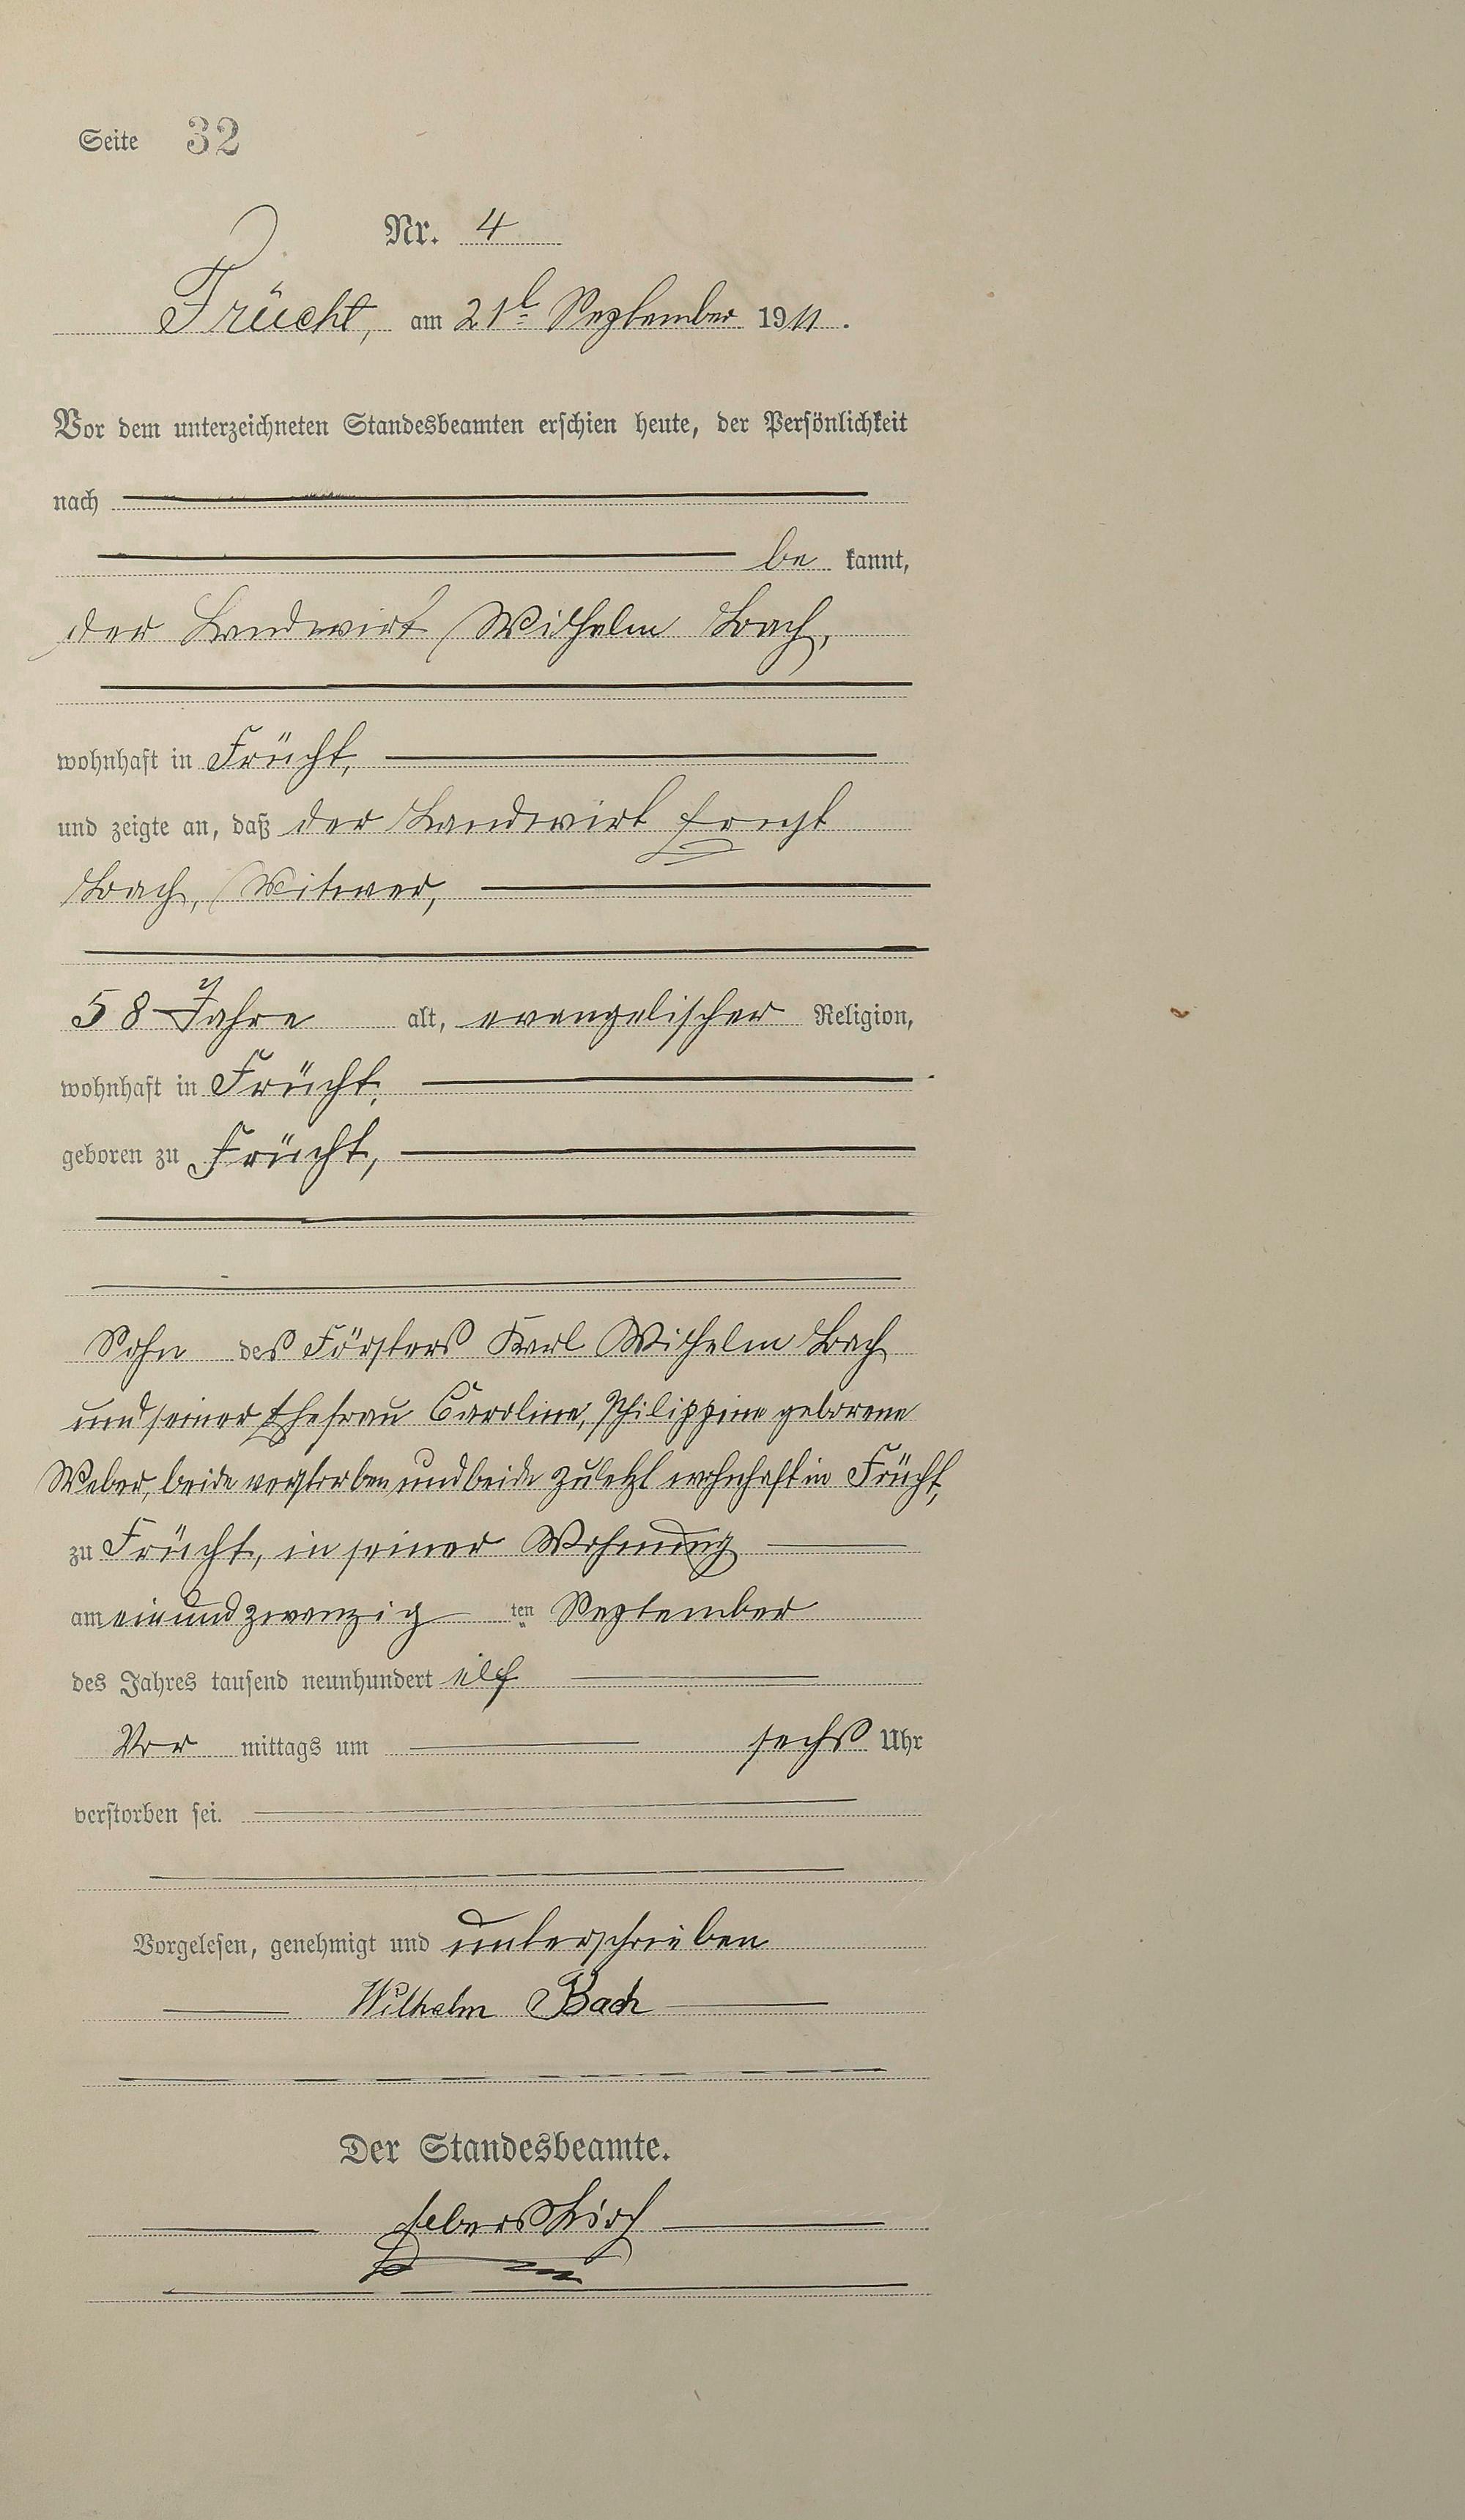 Seite 32
Nr. 4
Frücht, am 21t. September 1911.
Vor dem unterzeichneten Standesbeamten erschien heute, der Persönlichkeit
nach
be kannt,
der Landwirt Wilhelm Bach,
wohnhaft in Frücht,
und zeigte an, daß der Landwirt Ernst
Bach, Witwer,
58 Jahre alt, evangelischer Religion,
wohnhaft in Frücht,
geboren zu Frücht,
Sohn des Försters Karl Wilhelm Bach
und seiner Ehefrau Caroline, Philippine geborene
Weber, beide verstorben und beide zuletzt wohnhaft in Frücht,
zu Frücht, in seiner Wohnung
am einundzwanzig ten September
des Jahres tausend neunhundert elf
Vor mittags um sechs Uhr
verstorben sei.
Vorgelesen, genehmigt und unterschrieben
Wilhelm Bach
Der Standesbeamte.
Ebertskirch